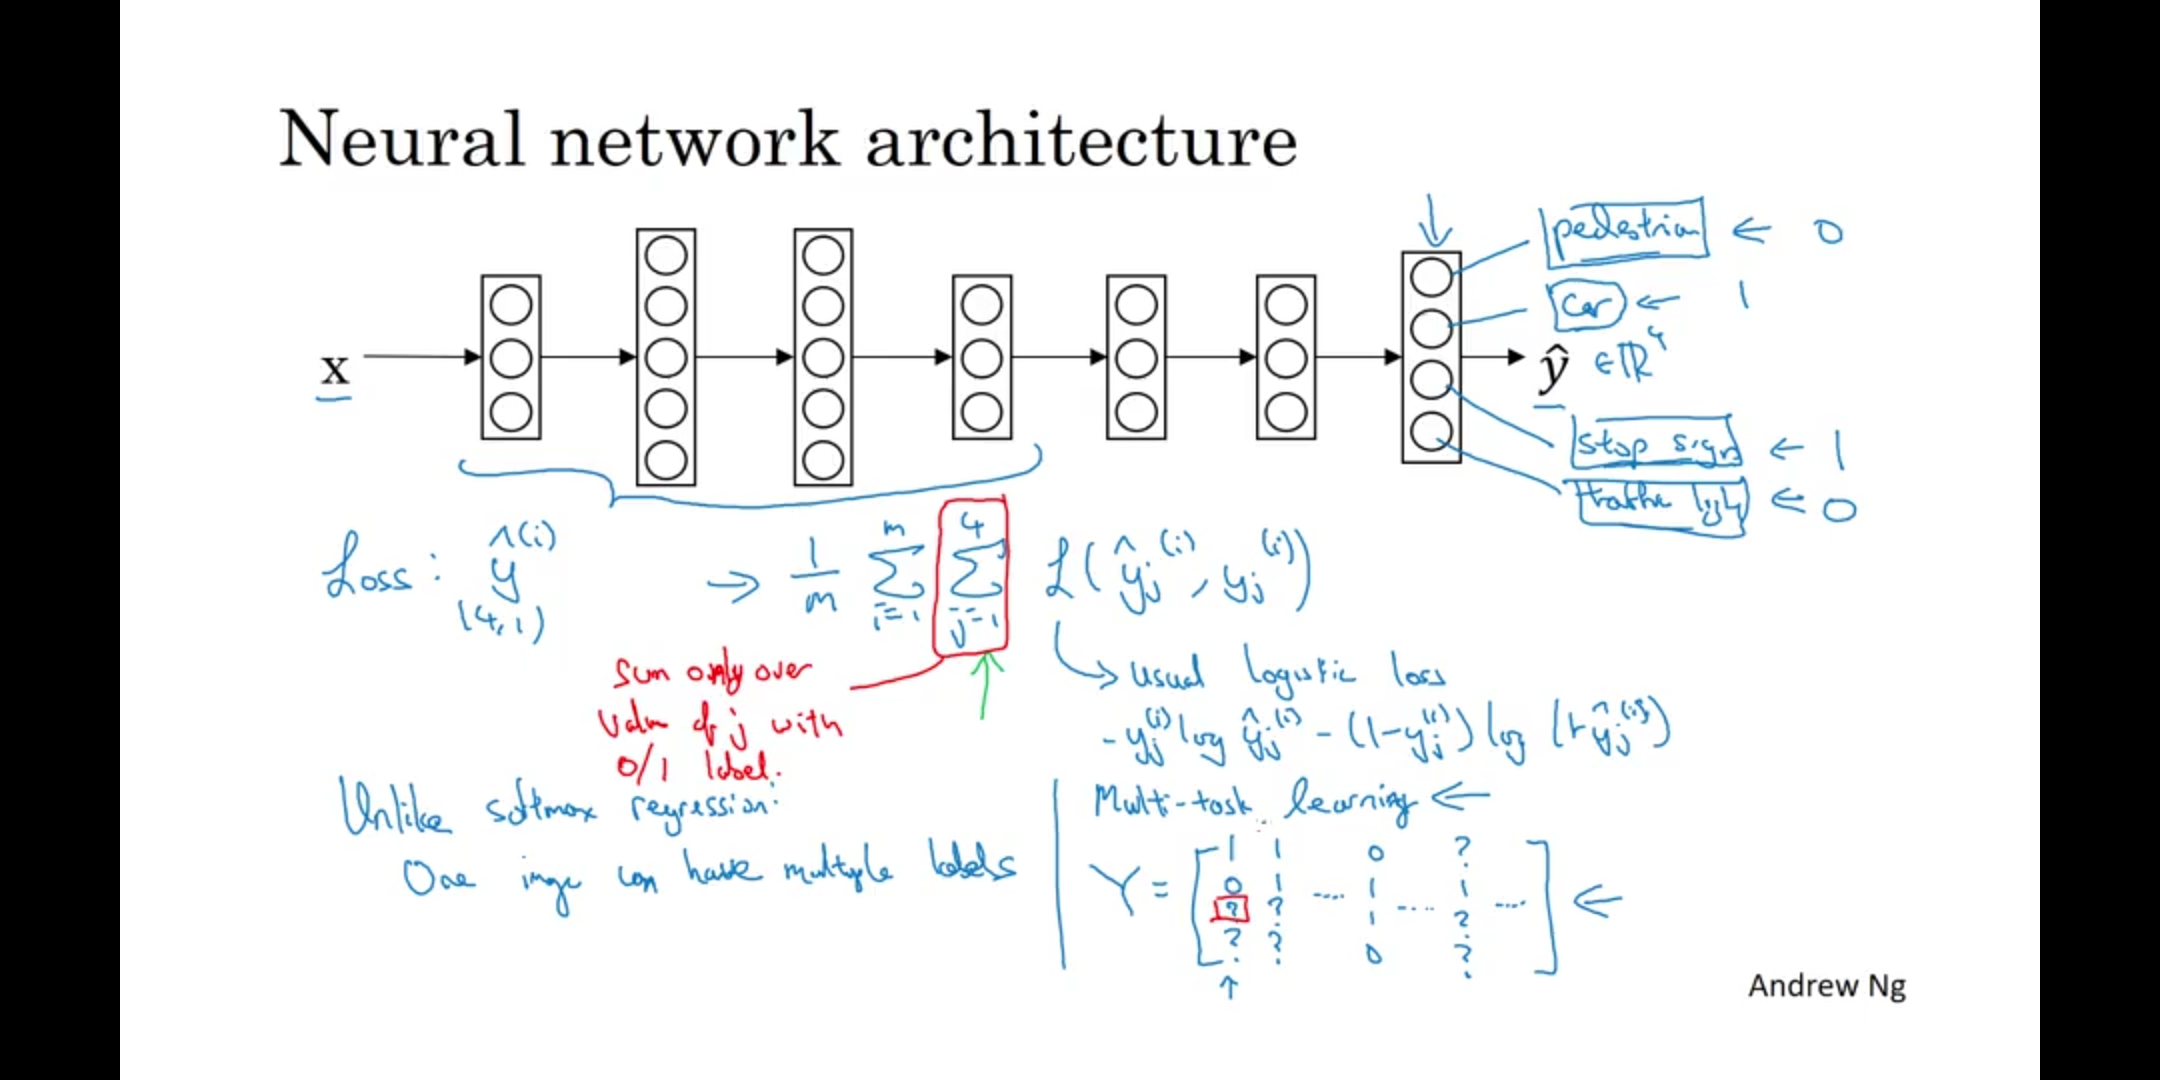 Neural network architecture
pedestrian ← 0
car ← 1
x
ŷ ∈ ℝ⁴
stop sign ← 1
traffic light ← 0
Loss: ŷ^(i) (4,1) → 1/m Σ_{i=1}^{m} Σ_{j=1}^{4} ℒ(ŷ_j^(i), y_j^(i))
sum only over
value of j with
0/1 label.
↳ usual logistic loss
- y_j^(i) log ŷ_j^(i) - (1-y_j^(i)) log (1-ŷ_j^(i))
Unlike softmax regression:
One image can have multiple labels
Multi-task learning ←
Y = [
1 1 0 ?
0 1 .... 1 .... 1 ....
? ? 1 ?
? ? 0 ?
] ←
Andrew Ng